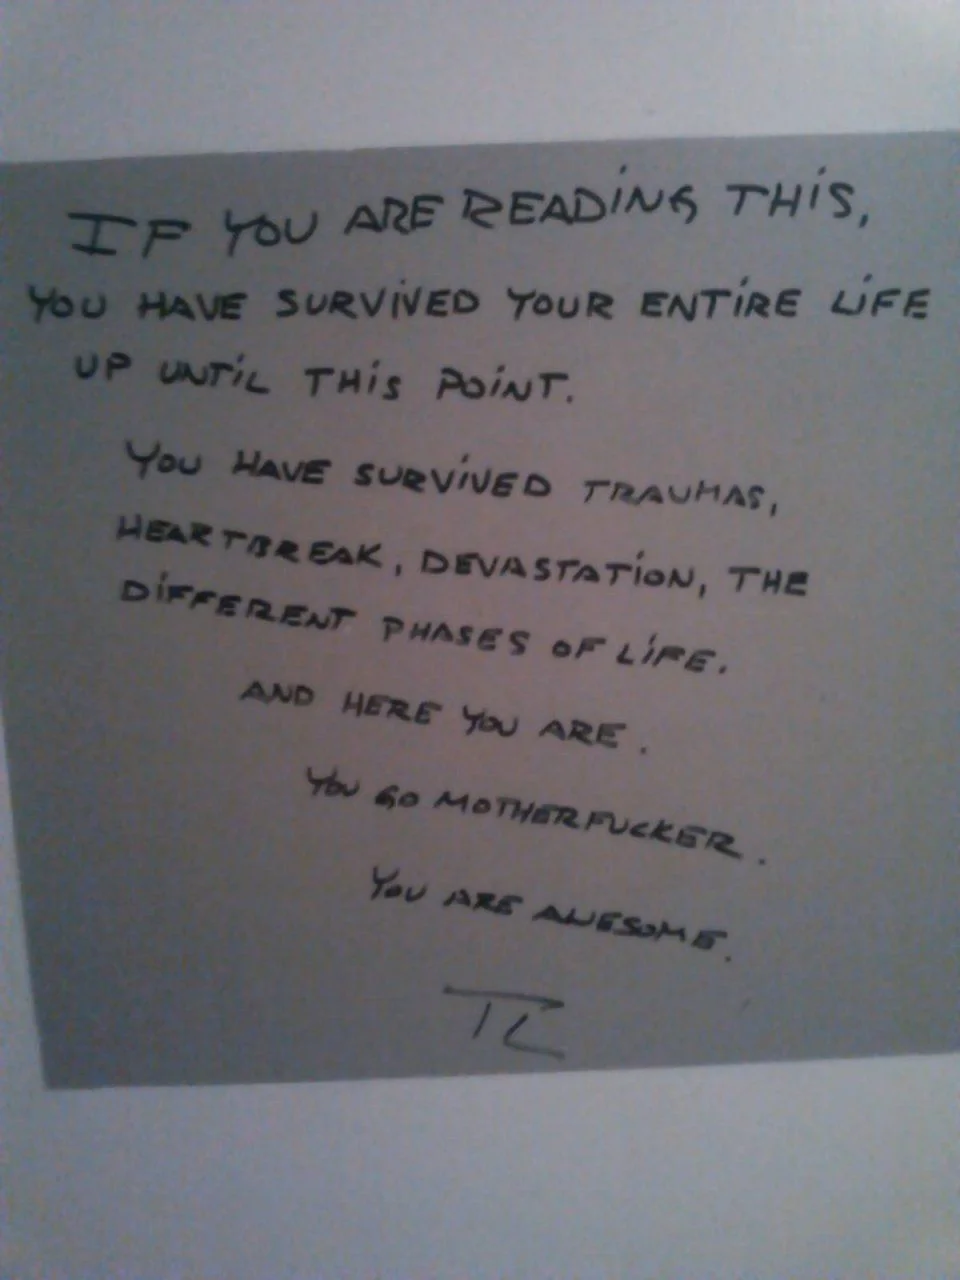 IF YOU ARE READING THIS,
YOU HAVE SURVIVED YOUR ENTIRE LIFE
UP UNTIL THIS POINT.
YOU HAVE SURVIVED TRAUMAS,
HEARTBREAK, DEVASTATION, THE
DIFFERENT PHASES OF LIFE.
AND HERE YOU ARE.
YOU GO MOTHERFUCKER.
YOU ARE AWESOME.
TL